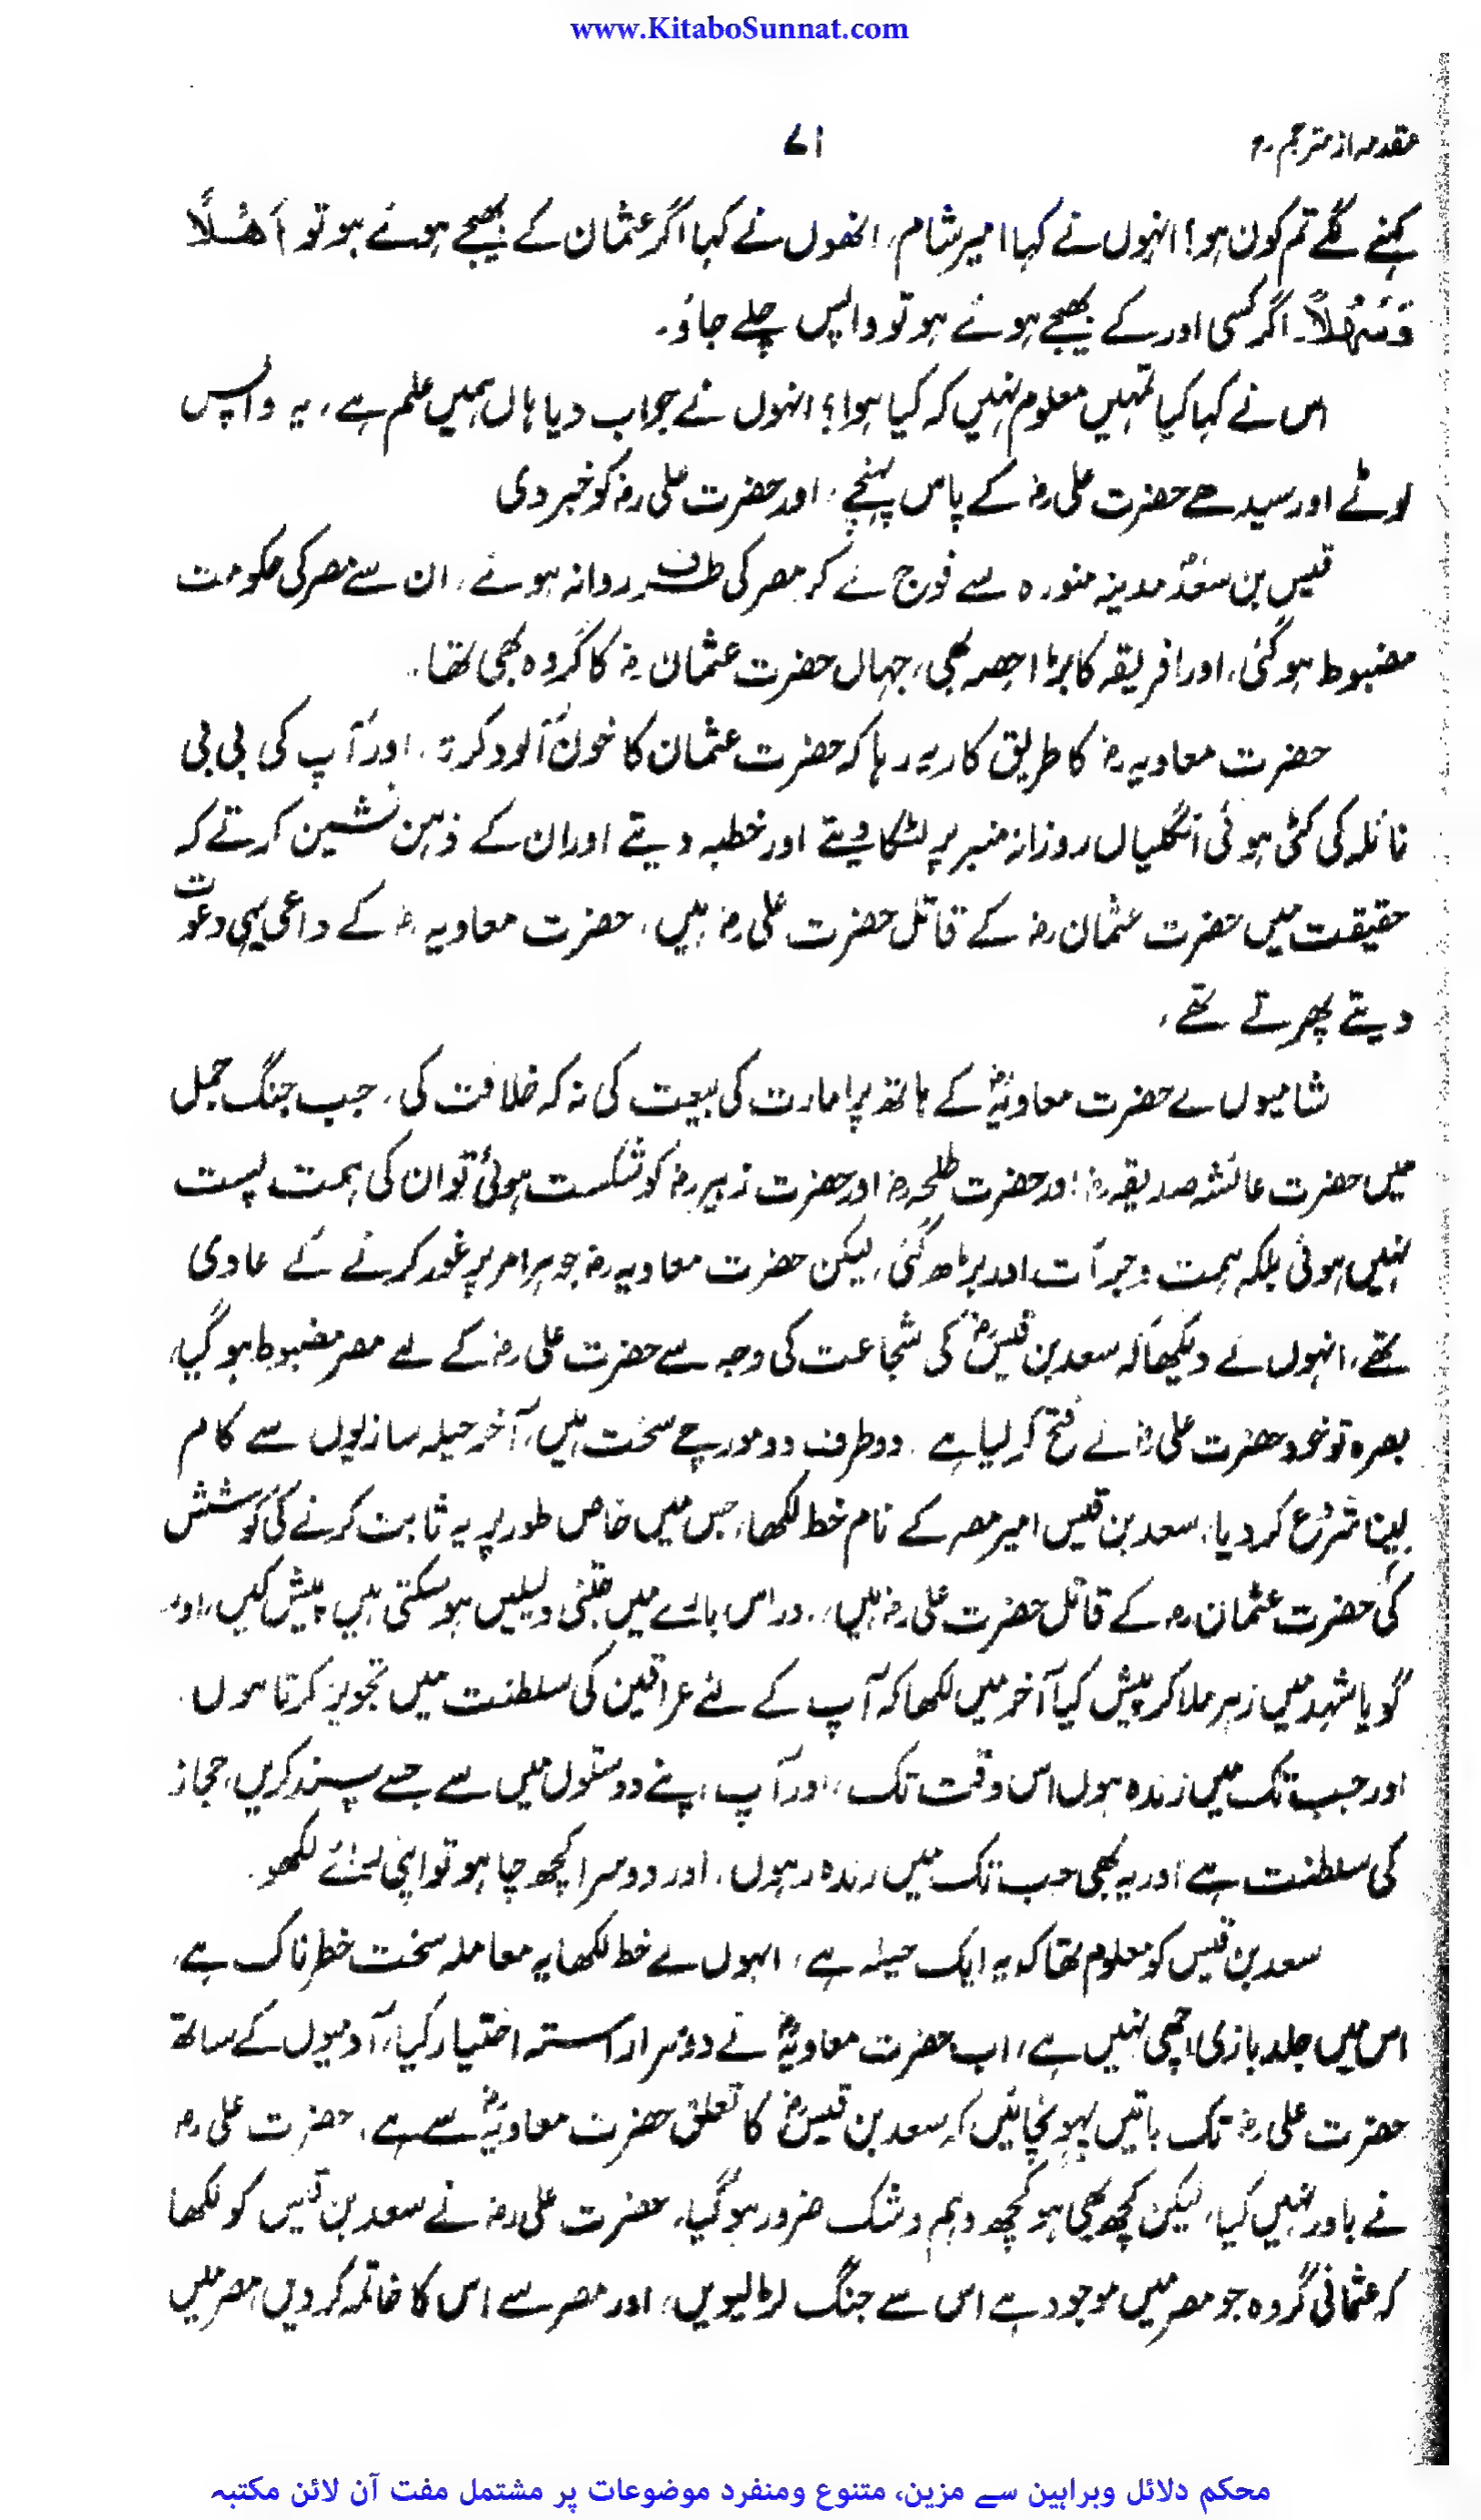 www.KitaboSunnat.com
مقدمہ از مترجم رہ
۷۱
کہنے لگے تم کون ہو؟ انہوں نے کہا امیر شام، انھوں نے کہا اگر عثمان کے بھیجے ہوئے ہو تو اَھْلًا
وَسَہْلًا۔ اگر کسی اور کے بھیجے ہوئے ہو تو واپس چلے جاؤ۔
اس نے کہا کیا تمہیں معلوم نہیں کہ کیا ہوا؟ انہوں نے جواب دیا ہاں ہمیں علم ہے، یہ واپس
لوٹے اور سیدھے حضرت علی رض کے پاس پہنچے، اور حضرت علی رض کو خبر دی
قیس بن سعدؓ مدینہ منورہ سے فوج لے کر مصر کی طرف روانہ ہوئے، ان سے مصر کی حکومت
مضبوط ہو گئی، اور افریقہ کا بڑا حصہ بھی، جہاں حضرت عثمان رض کا گروہ بھی تھا۔
حضرت معاویہ رض کا طریق کار یہ رہا کہ حضرت عثمان کا خون آلود کرتہ، اور آپ کی بی بی
نائلہ کی کٹی ہوئی انگلیاں روزانہ منبر پر لٹکا دیتے اور خطبہ دیتے اور ان کے ذہن نشین کرتے کہ
حقیقت میں حضرت عثمان رض کے قاتل حضرت علی رض ہیں، حضرت معاویہ رض کے داعی یہی دعوت
دیتے پھرتے تھے،
شامیوں نے حضرت معاویہؓ کے ہاتھ پر امارت کی بیعت کی نہ کہ خلافت کی، جب جنگ جمل
میں حضرت عائشہ صدیقہ رض اور حضرت طلحہ رض اور حضرت زبیر رض کو شکست ہوئی تو ان کی ہمت پست
نہیں ہوئی بلکہ ہمت و جرأت اور بڑھ گئی، لیکن حضرت معاویہ رض جو ہر امر پر غور کرنے کے عادی
تھے، انہوں نے دیکھا کہ سعد بن قیسؓ کی شجاعت کی وجہ سے حضرت علی رض کے لے مصر مضبوط ہو گیا،
بصرہ تو خود حضرت علی رض نے فتح کر لیا ہے، دو طرف دو مورچے سخت ہیں، آخر حیلہ سازیوں سے کام
لینا شروع کر دیا، سعد بن قیس امیر مصر کے نام خط لکھا، جس میں خاص طور پر یہ ثابت کرنے کی کوشش
کی حضرت عثمان رض کے قاتل حضرت علی رض ہیں، اور اس بارے میں جتنی دلیلیں ہو سکتی ہیں پیش کیں، اور
گویا شہد میں زہر ملا کر پیش کیا آخر میں لکھا کہ آپ کے لئے عراقین کی سلطنت میں تجویز کرتا ہوں۔
اور جب تک میں زندہ ہوں اس وقت تک، اور آپ اپنے دوستوں میں سے جسے پسند کریں، حجاز
کی سلطنت ہے اور یہ بھی جب تک میں زندہ رہوں، اور دوسرا کچھ چاہو تو اپنی لئے لکھو۔
سعد بن قیس کو معلوم تھا کہ یہ ایک حیلہ ہے، انہوں نے خط لکھا یہ معاملہ سخت خطرناک ہے،
اس میں جلد بازی اچھی نہیں ہے، اب حضرت معاویہؓ نے دوسرا راستہ اختیار کیا، آدمیوں کے ساتھ
حضرت علی رض تک باتیں پہونچائیں کہ سعد بن قیسؓ کا تعلق حضرت معاویہؓ سے ہے، حضرت علی رض
نے باور نہیں کیا، لیکن کچھ بھی ہو کچھ وہم و شک ضرور ہو گیا، حضرت علی رض نے سعد بن قیس کو لکھا
کہ عثمانی گروہ جو مصر میں موجود ہے اس سے جنگ لڑا لیویں، اور مصر سے اس کا خاتمہ کر دیں، مصر میں
محکم دلائل وبراہین سے مزین، متنوع ومنفرد موضوعات پر مشتمل مفت آن لائن مکتبہ